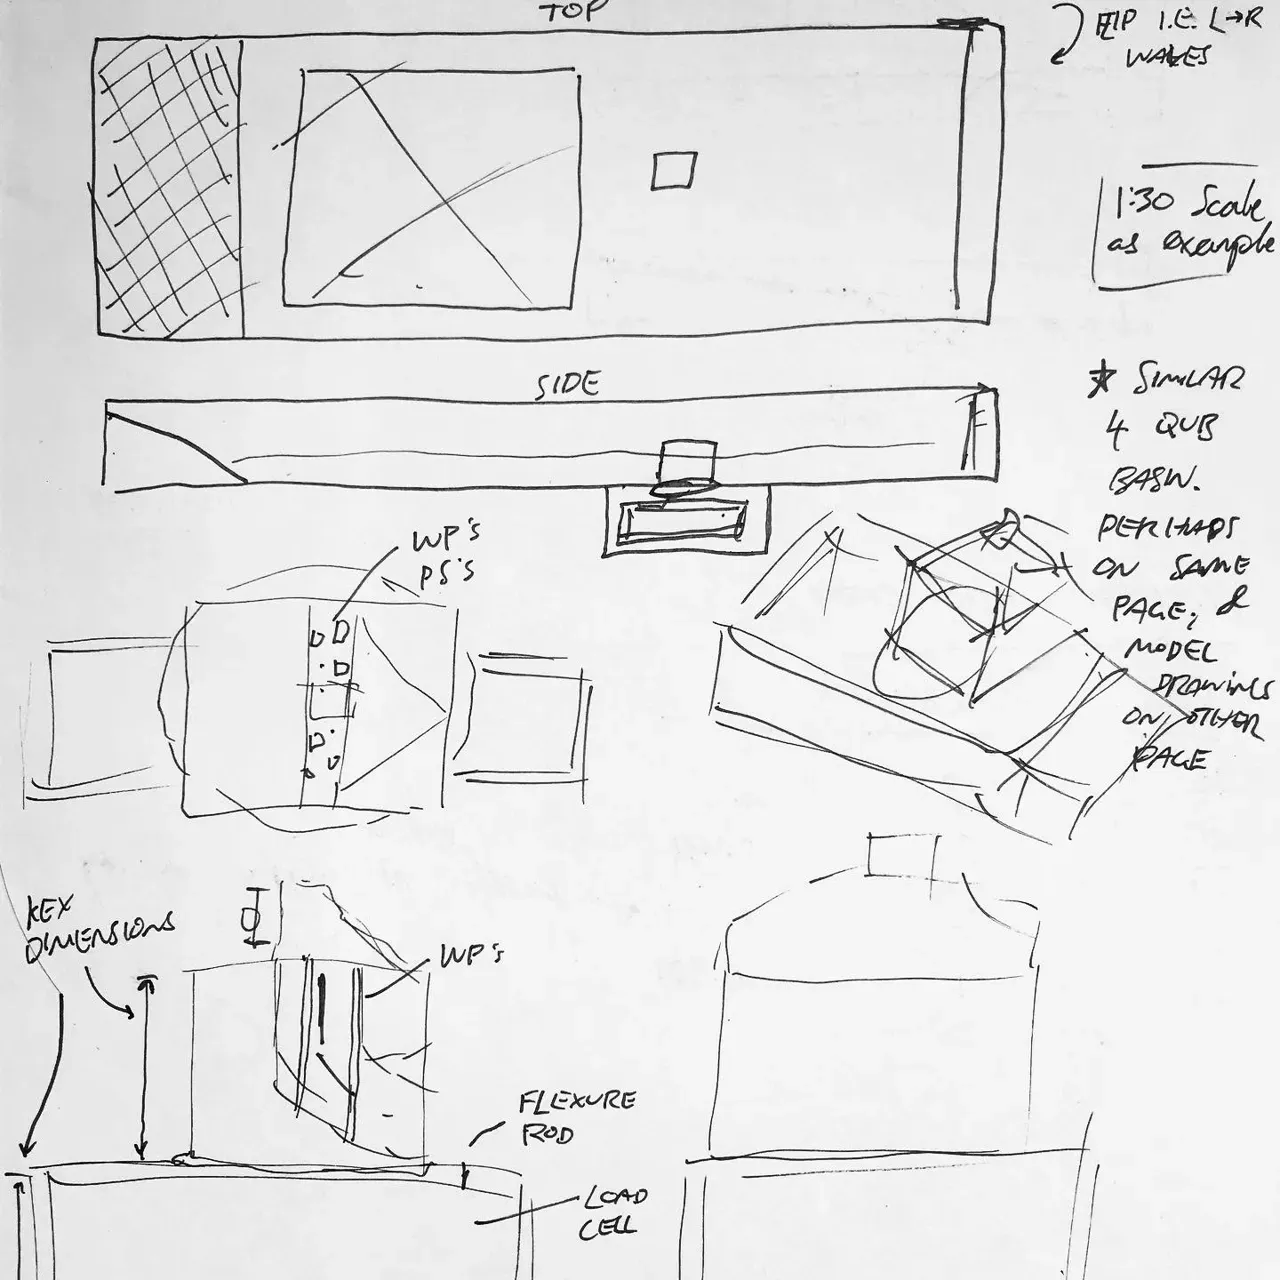 TOP
FLIP I.E. L→R
WAVES
1:30 Scale
as example
SIDE
* SIMILAR
4 QUB
BASIN.
PERHAPS
ON SAME
PAGE, &
MODEL
DRAWINGS
ON OTHER
PAGE
WP's
PS's
KEY
DIMENSIONS
WP's
FLEXURE
ROD
LOAD
CELL